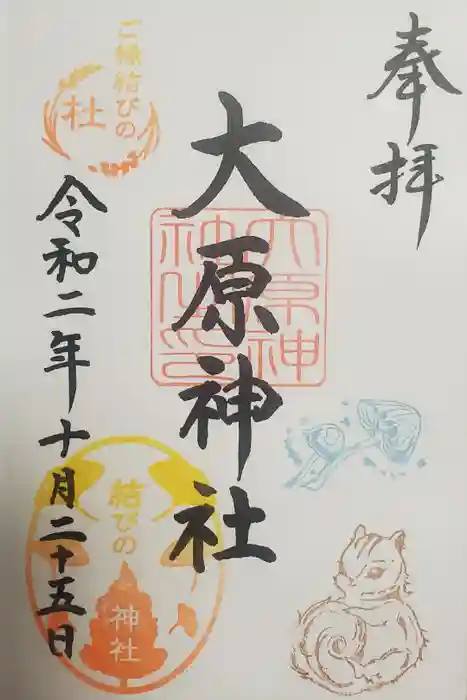 奉拝
大原神社
大原神
社之印
令和二年十月二十五日
ご縁結びの
杜
結びの
神社